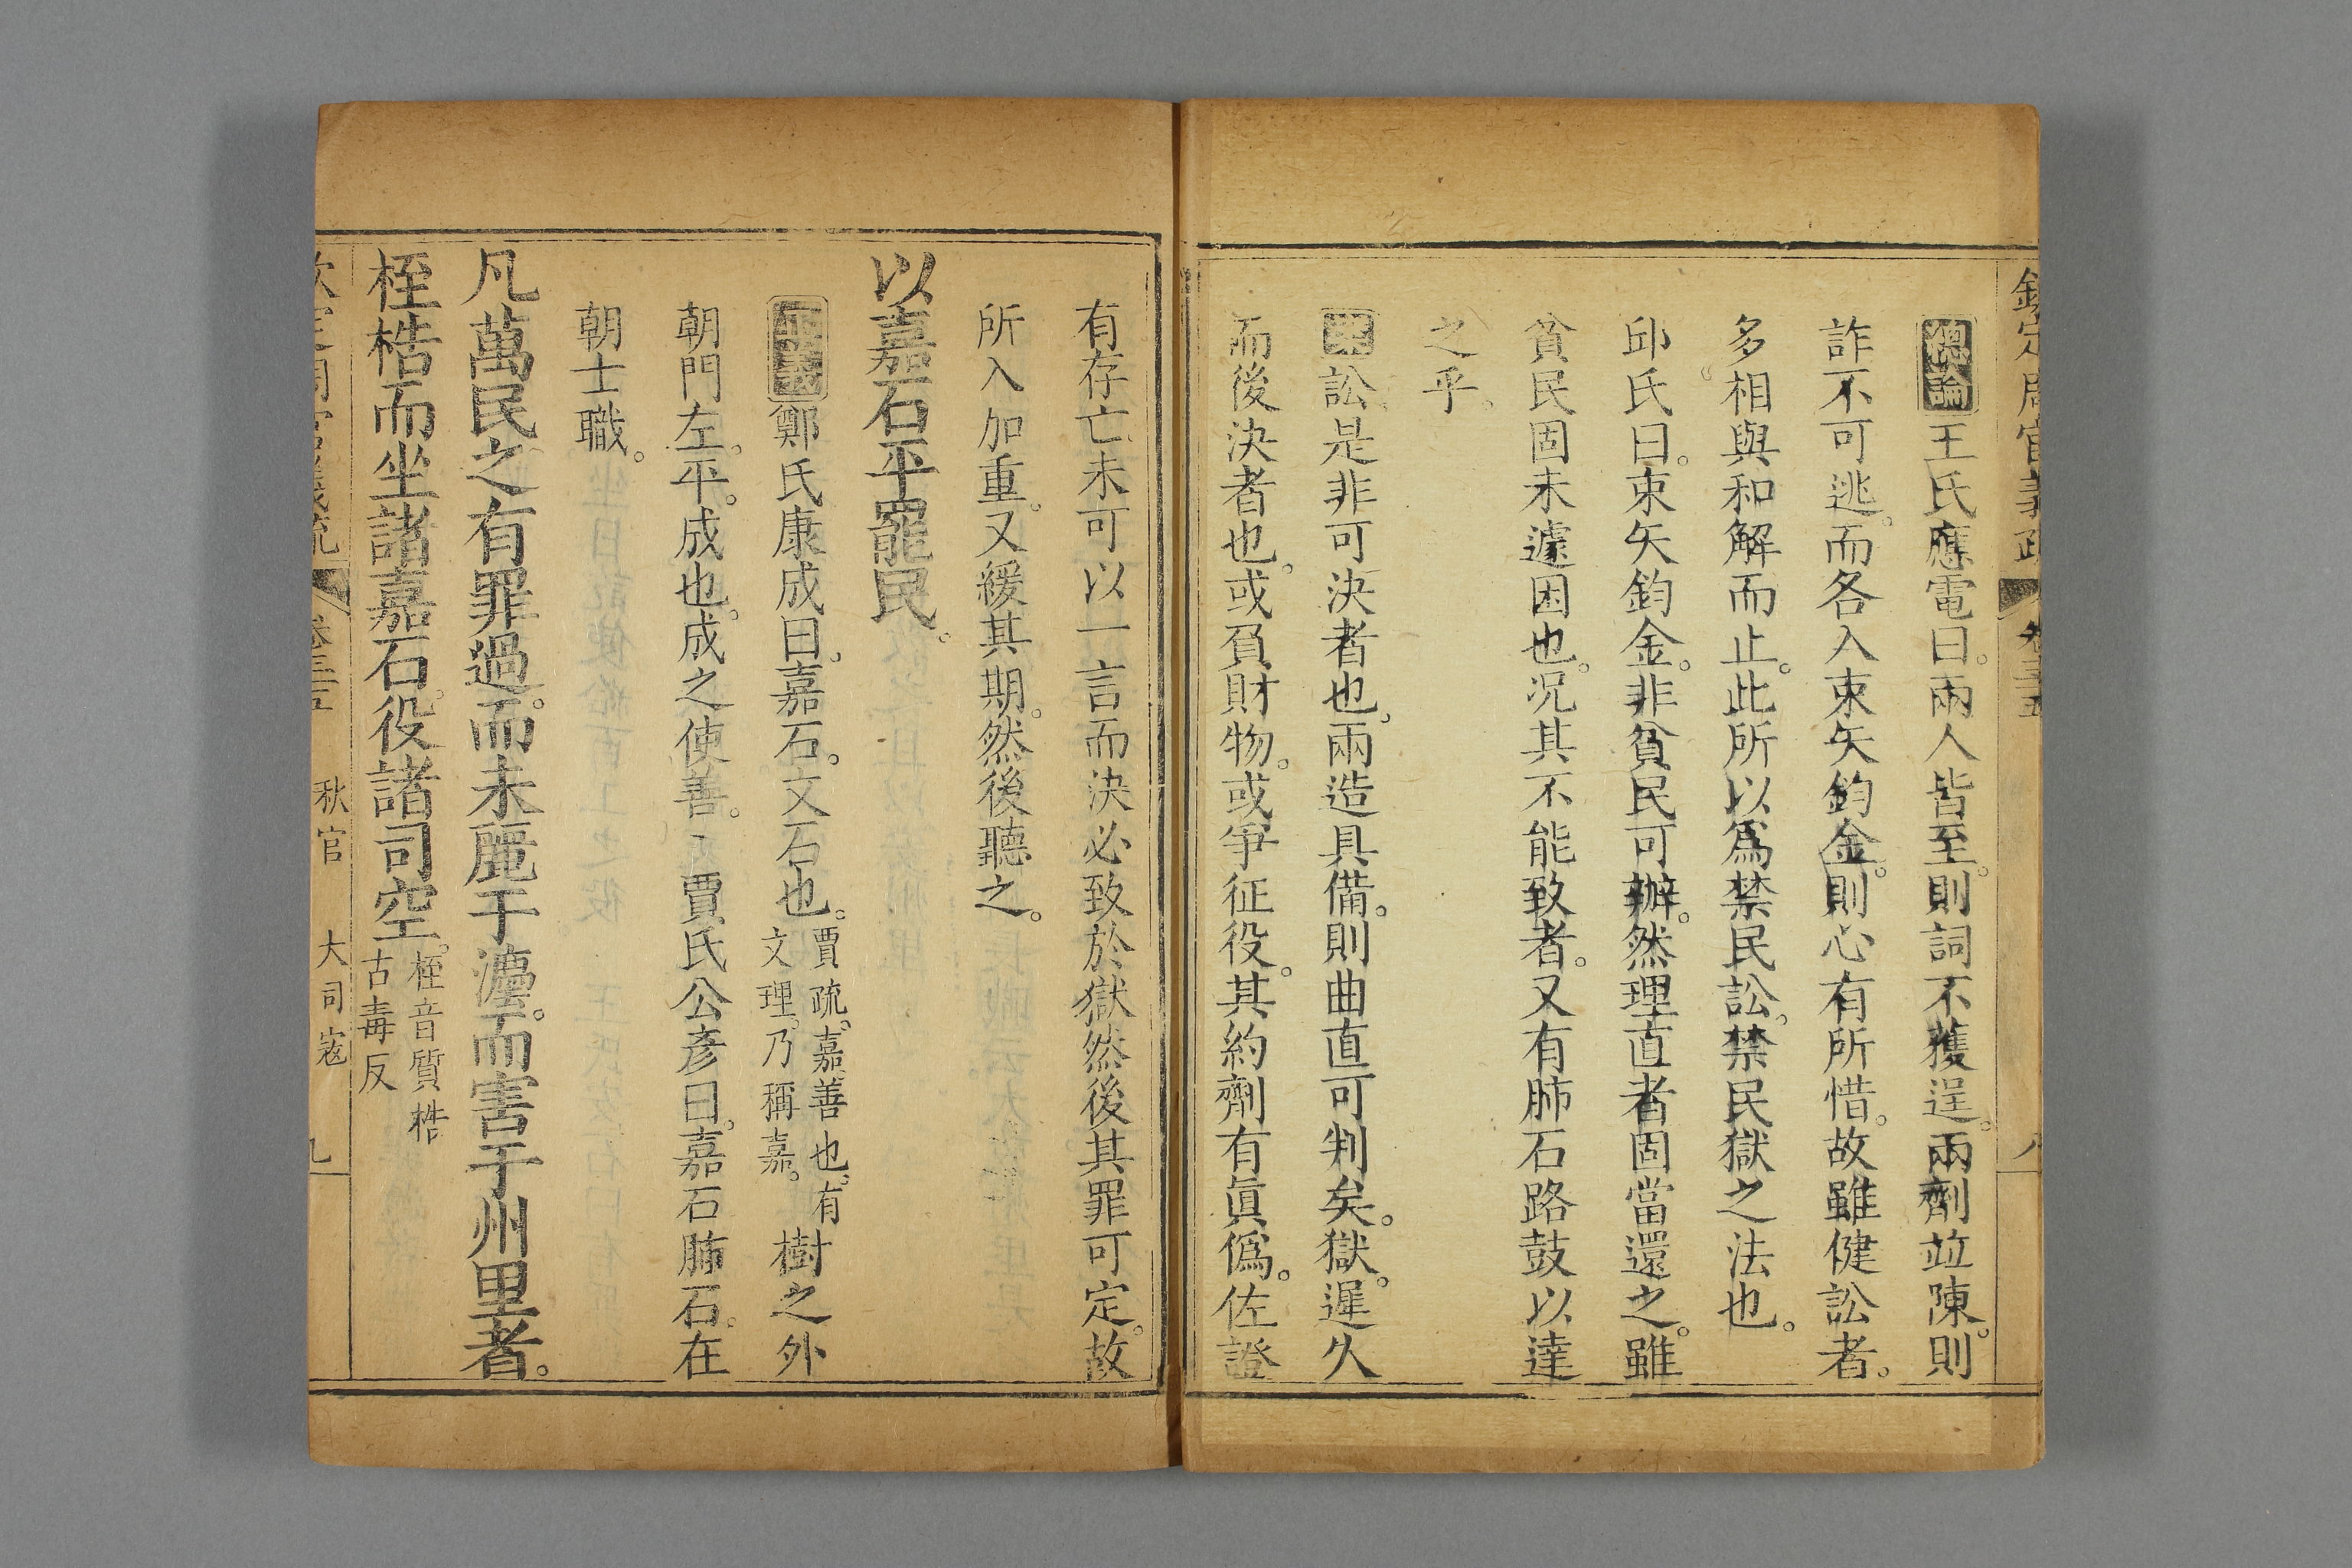 欽定周官義疏 卷三十五 八
總論王氏應電曰。兩人皆至。則詞不獲逞。兩劑竝陳。則
詐不可逃。而各入束矢鈞金。則心有所惜。故雖健訟者。
多相與和解而止。此所以爲禁民訟。禁民獄之法也。
邱氏曰。束矢鈞金。非貧民可辦。然理直者固當還之。雖
貧民固未遽困也。况其不能致者。又有肺石路鼓以達
之乎。
案訟。是非可決者也。兩造具備。則曲直可判矣。獄。遲久
而後決者也。或負財物。或爭征役。其約劑有眞僞。佐證
有存亡。未可以一言而決。必致於獄然後其罪可定。故
所入加重。又緩其期。然後聽之。
以嘉石平罷民。
正義鄭氏康成曰。嘉石。文石也。賈疏。嘉善也。有文理。乃稱嘉。樹之外
朝門左。平。成也。成之使善。 賈氏公彥曰。嘉石肺石。在
朝士職。
凡萬民之有罪過。而未麗于灋。而害于州里者。
桎梏而坐諸嘉石。役諸司空。桎音質梏古毒反
欽定周官義疏 卷三十五 秋官 大司寇 九